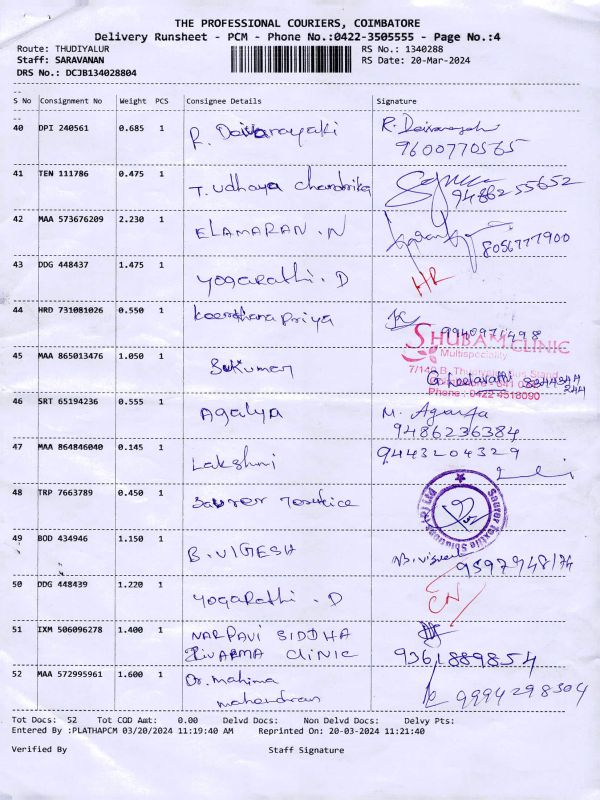 THE PROFESSIONAL COURIERS, COIMBATORE
Delivery Runsheet - PCM - Phone No.:0422-3505555 - Page No.:4
Route: THUDIYALUR RS No.: 1340288
Staff: SARAVANAN RS Date: 20-Mar-2024
DRS No.: DCJB134028804
S No Consignment No Weight PCS Consignee Details Signature
40 DPI 240561 0.685 1 R. Deivanayaki R. Deivanayaki
9600770565
41 TEN 111786 0.475 1 T. Udhaya Chandrika 9486255652
42 MAA 573676209 2.230 1 ELAMARAN . N 8056777900
43 DDG 448437 1.475 1 Yogarathi . D HR
44 HRD 731081026 0.550 1 Keerthana Priya
SHUBAM CLINIC
Multispeciality
45 MAA 865013476 1.050 1 Sukumar
Phone : 0422 4518090
46 SRT 65194236 0.555 1 Agalya M. Agalya
9486236384
47 MAA 864846040 0.145 1 Lakshmi 9443204329
48 TRP 7663789 0.450 1 Saurer Textile
49 BOD 434946 1.150 1 B. VIGESH 9597948174
50 DDG 448439 1.220 1 Yogarathi . D CN
51 IXM 506096278 1.400 1 NARPAVI SIDDHA
VARMA CLINIC 9361889854
52 MAA 572995961 1.600 1 Dr. Mahima
mahendran 9994298304
Tot Docs: 52 Tot COD Amt: 0.00 Delvd Docs: Non Delvd Docs: Delvy Pts:
Entered By :PLATHAPCM 03/20/2024 11:19:40 AM Reprinted On: 20-03-2024 11:21:40
Verified By Staff Signature